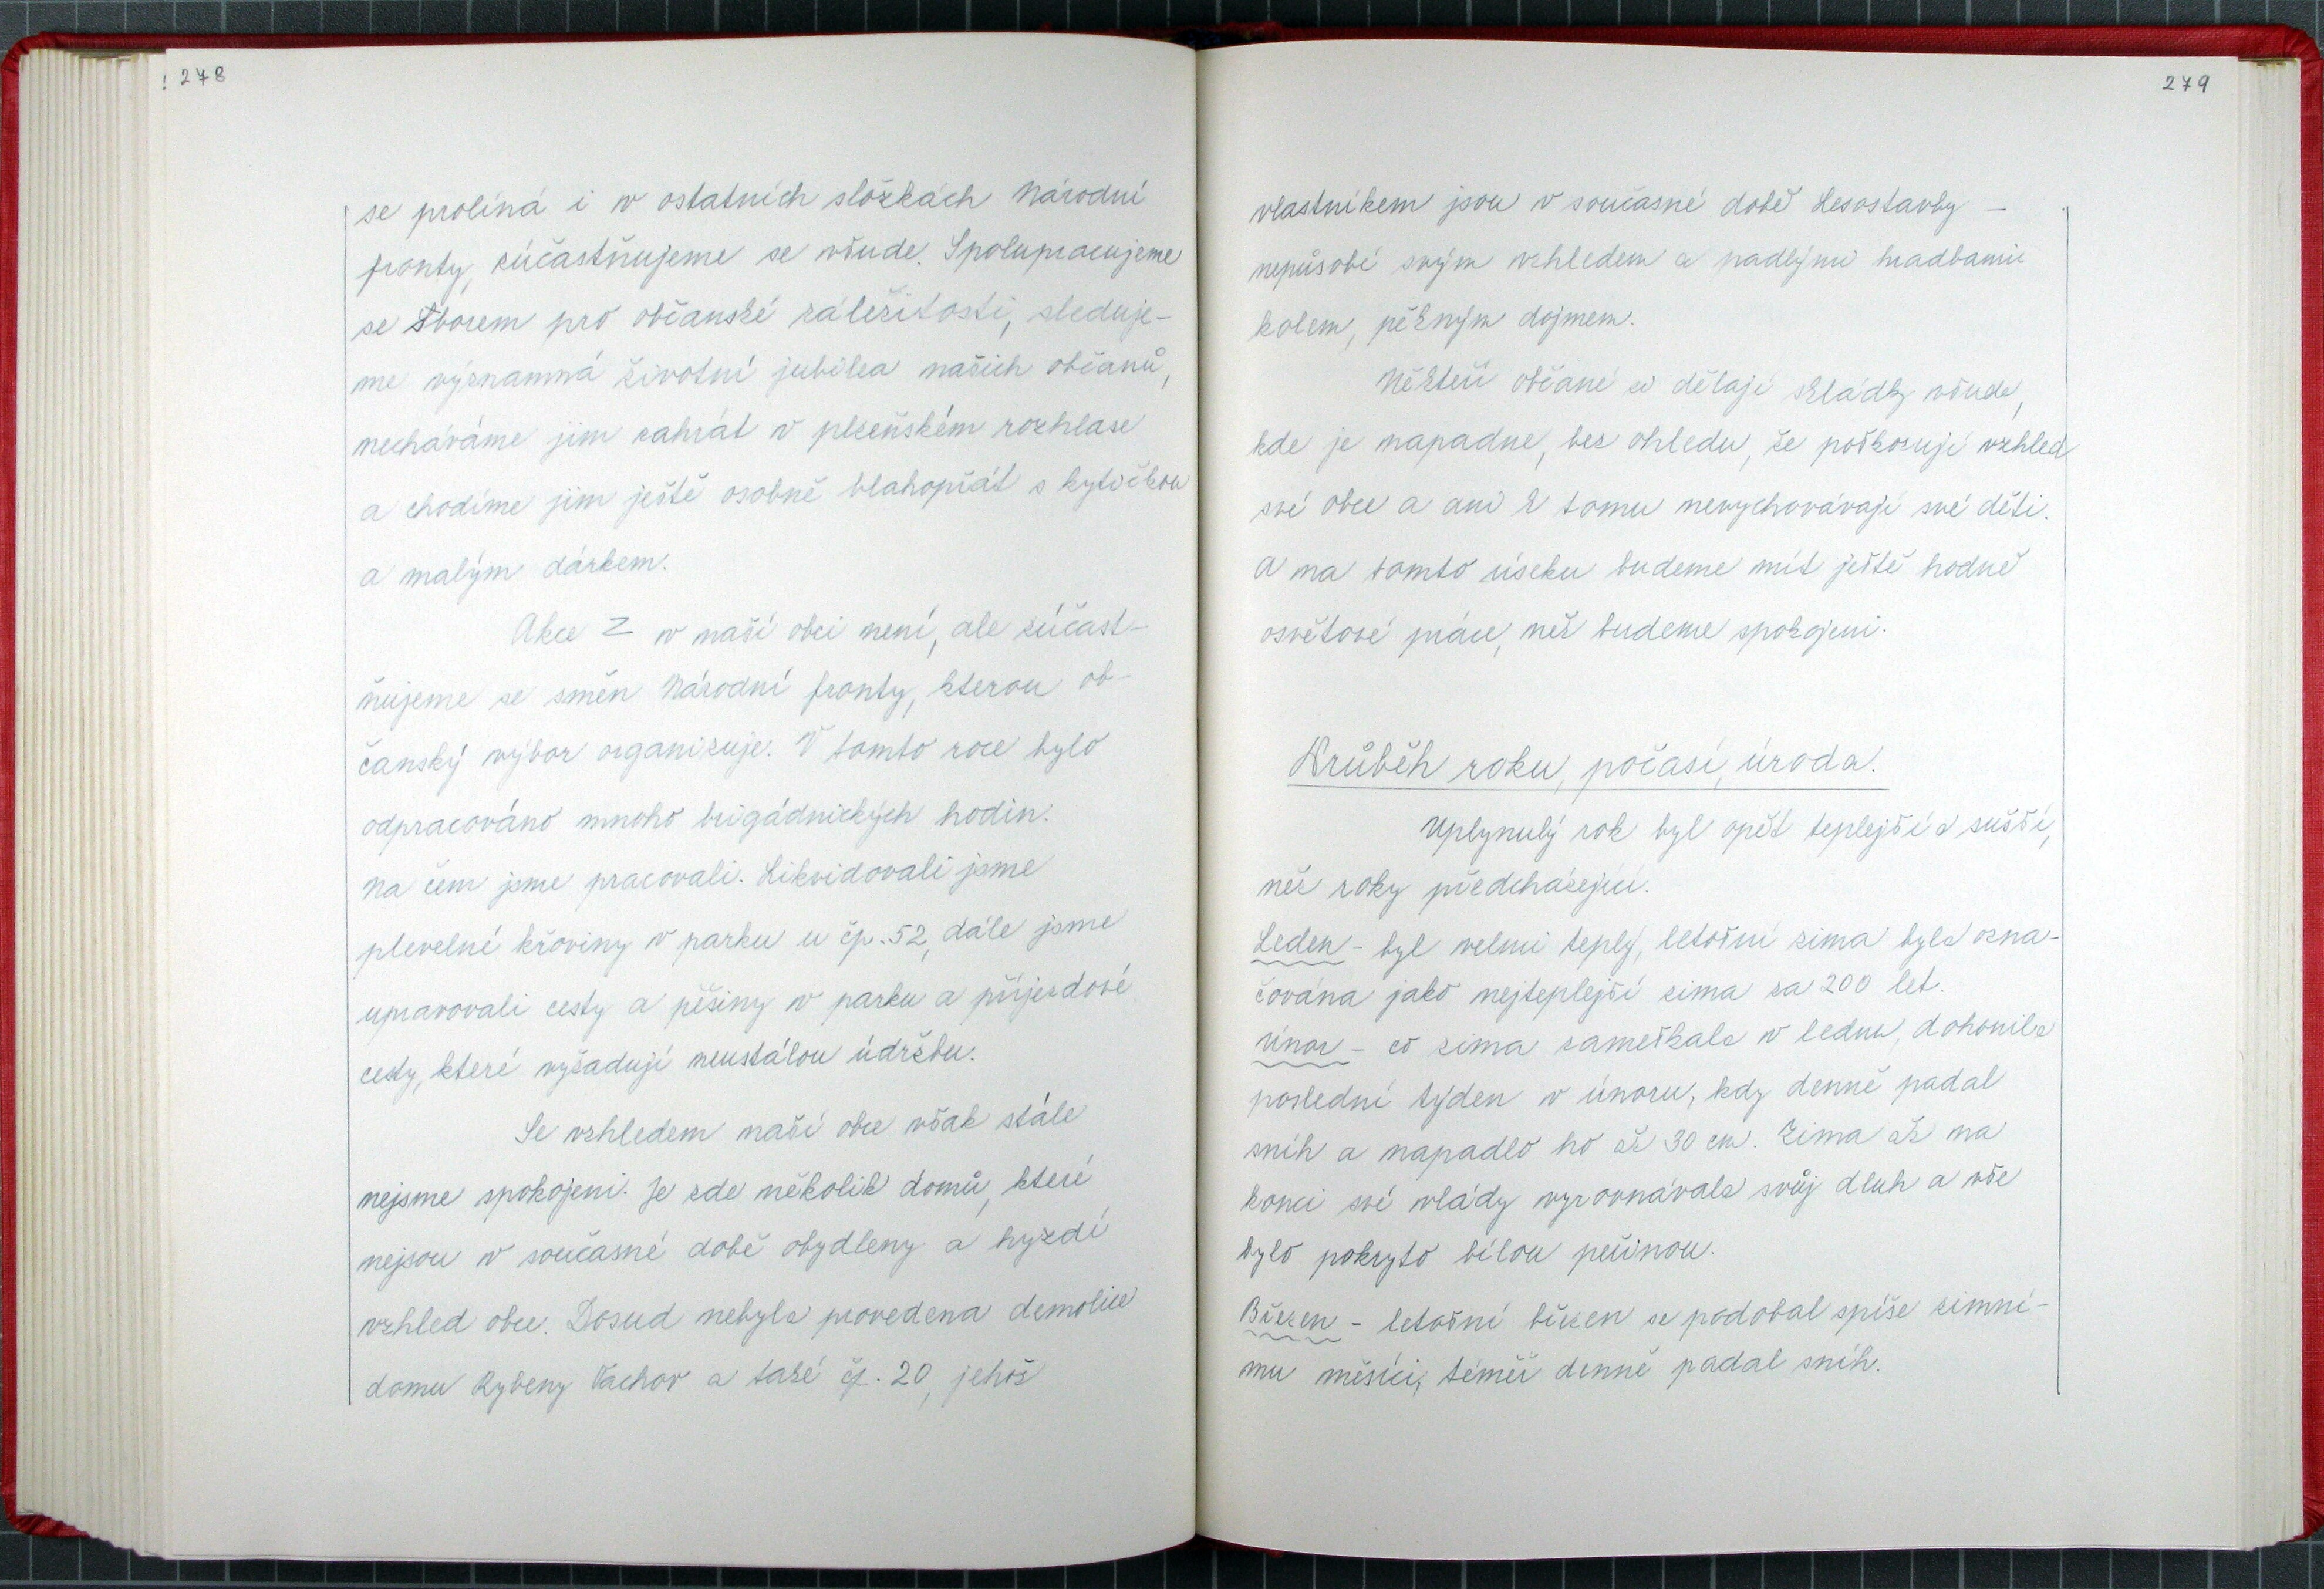 278
se prolíná i v ostatních složkách Národní
fronty, zúčastňujeme se všude. Spolupracujeme
se Sborem pro občanské záležitosti, sleduje-
me významná životní jubilea našich občanů,
necháváme jim zahrát v plzeňském rozhlase
a chodíme jim ještě osobně blahopřát s kytičkou
a malým dárkem.
Akce Z v naší obci není, ale zúčast-
ňujeme se směn Národní fronty, kterou ob-
čanský výbor organizuje. V tomto roce bylo
odpracováno mnoho brigádnických hodin.
Na čem jsme pracovali. Likvidovali jsme
plevelné křoviny v parku u čp. 52, dále jsme
upravovali cesty a pěšiny v parku a příjezdové
cesty, které vyžadují neustálou údržbu.
Se vzhledem naší obce však stále
nejsme spokojeni. Je zde několik domů, které
nejsou v současné době obydleny a hyzdí
vzhled obce. Dosud nebyla provedena demolice
domu Rybeny Vachov a také čp. 20, jehož
279
vlastníkem jsou v současné době Lesostavby -
nepůsobí svým vzhledem a padlými hradbami
kolem, pěkným dojmem.
Někteří občané si dělají skládky všude,
kde je napadne, bez ohledu, že poškozují vzhled
své obce a ani k tomu nevychovávají své děti.
A na tomto úseku budeme mít ještě hodně
osvětové práce, než budeme spokojeni.
Průběh roku, počasí, úroda.
Uplynulý rok byl opět teplejší a sušší,
než roky předcházející.
Leden - byl velmi teplý, letošní zima byla ozna-
čována jako nejteplejší zima za 200 let.
Únor - co zima zameškala v lednu, dohonila
poslední týden v únoru, kdy denně padal
sníh a napadlo ho až 30 cm. Zima až na
konci své vlády vyrovnávala svůj dluh a vše
bylo pokryto bílou peřinou.
Březen - letošní březen se podobal spíše zimní-
mu měsíci, téměř denně padal sníh.